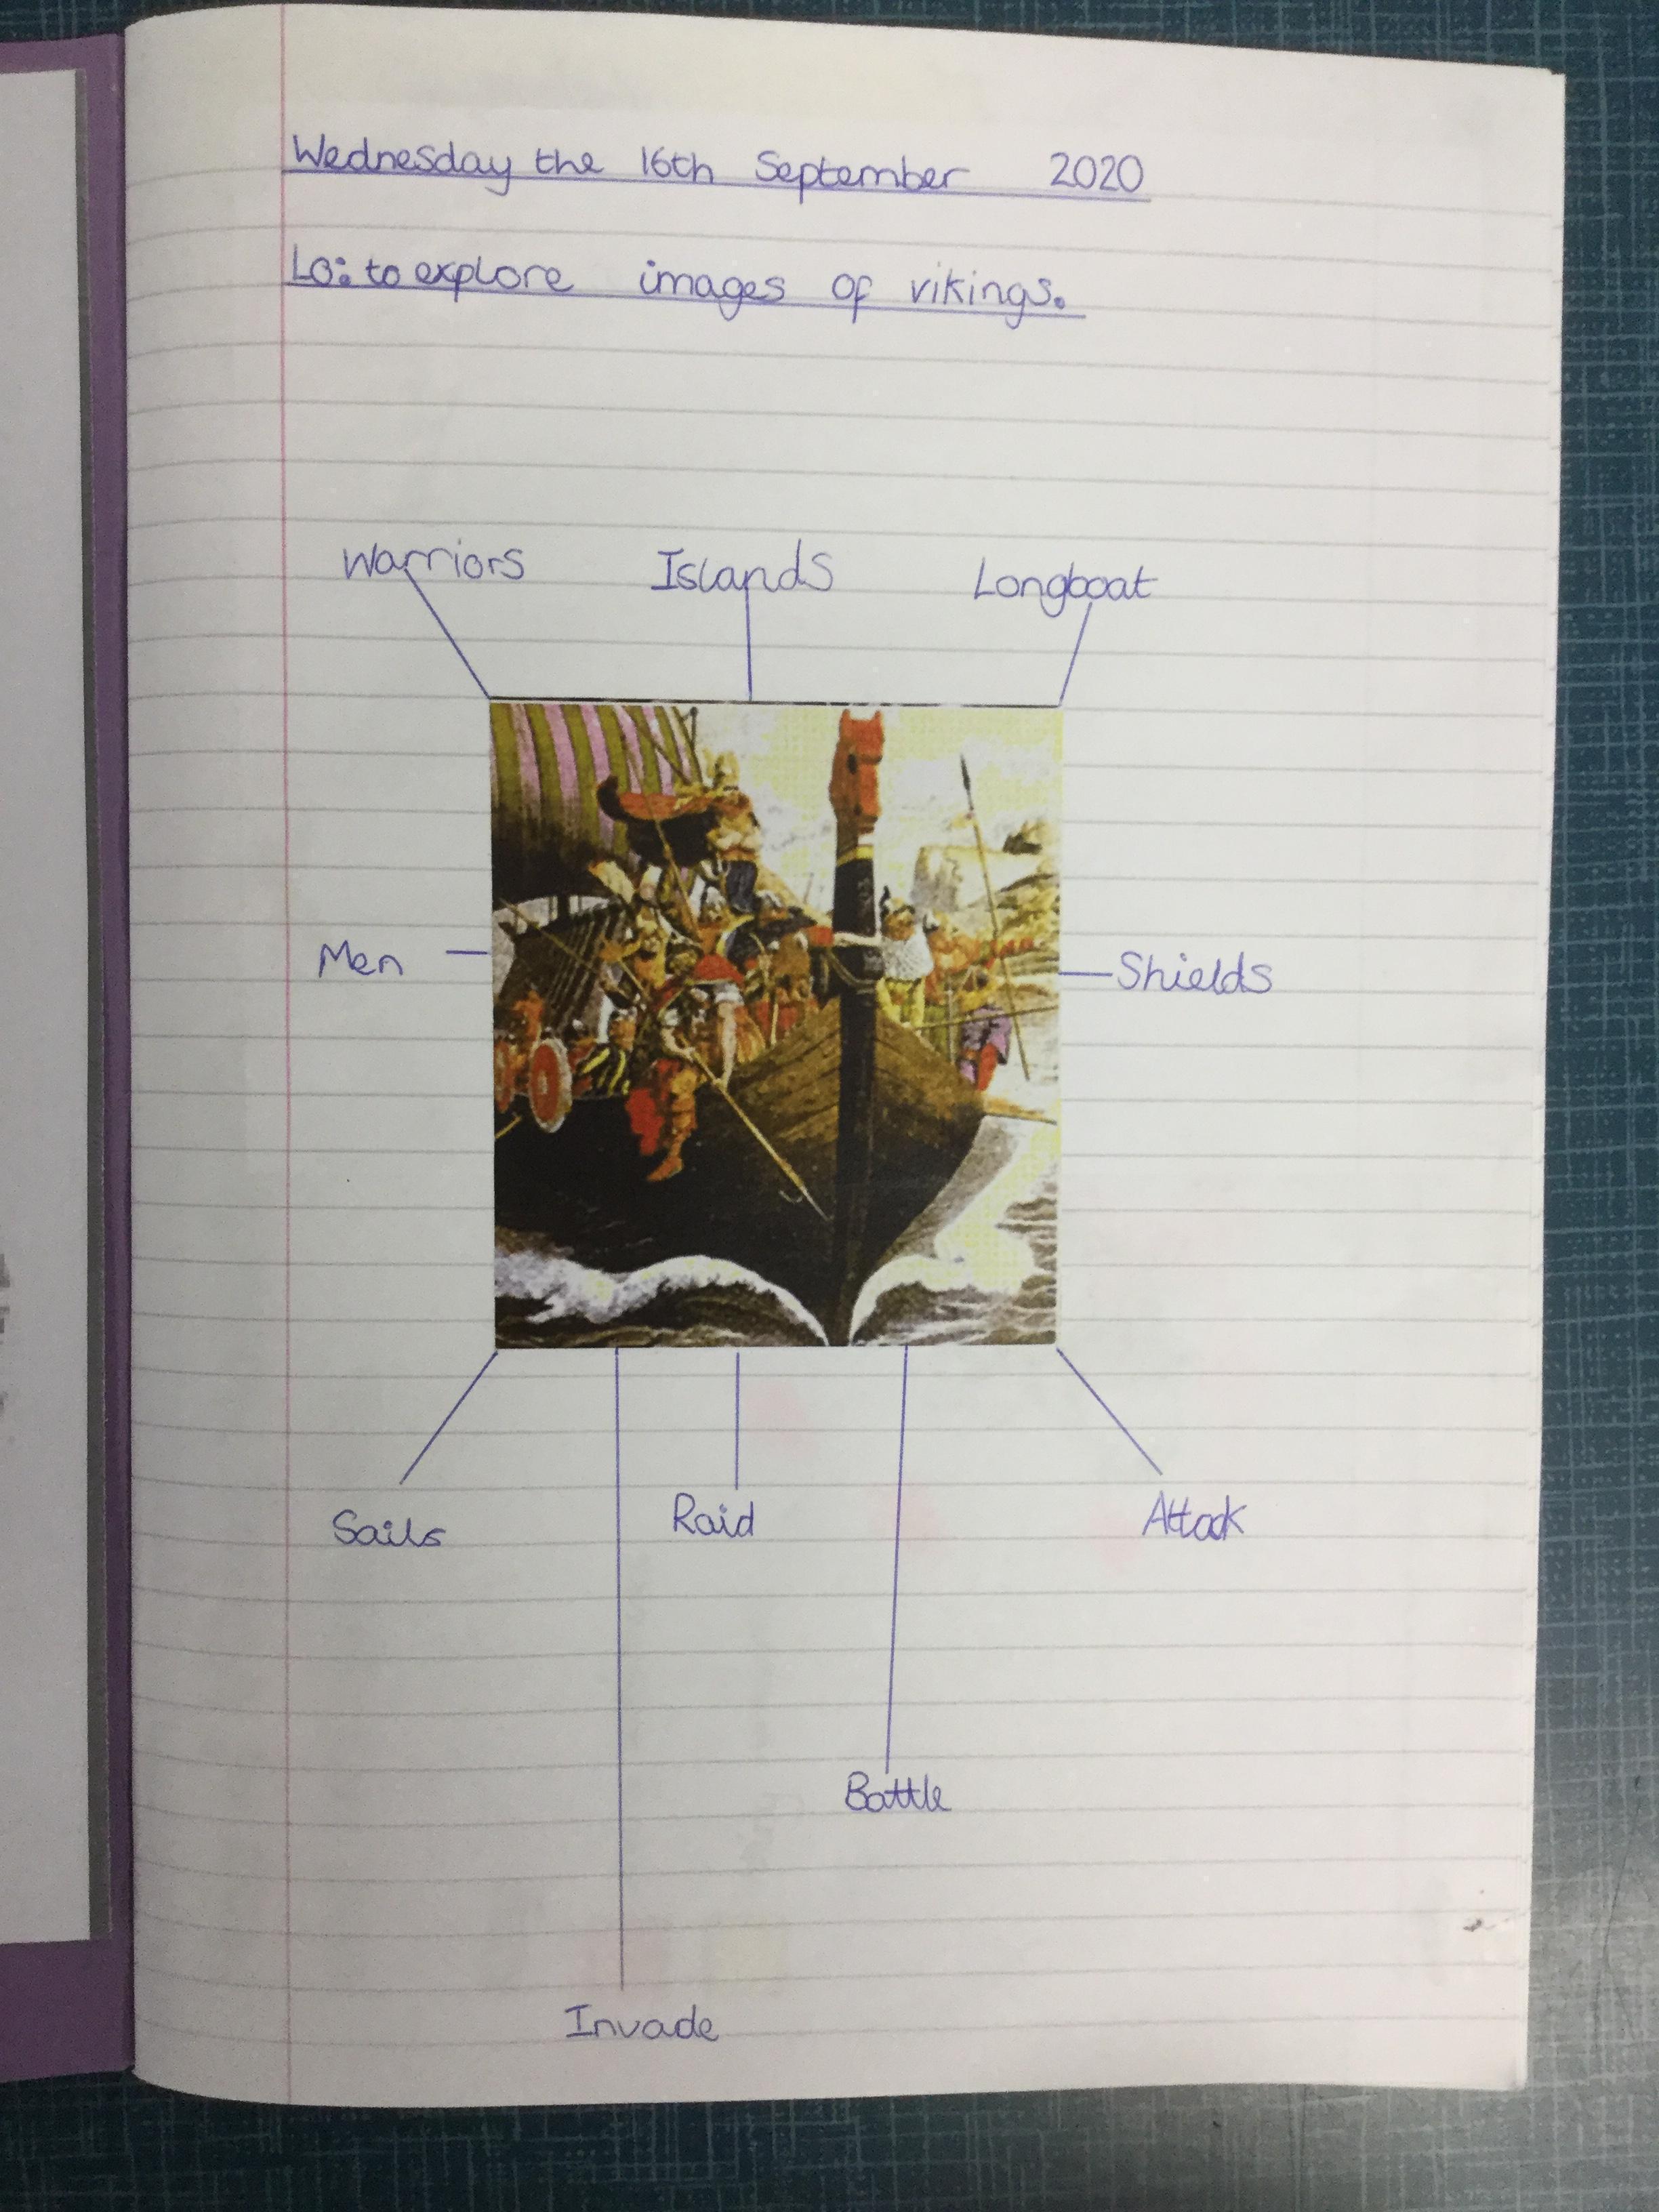 Wednesday the 16th September 2020
LO: to explore images of vikings.
Warriors
Islands
Longboat
Men
Shields
Sails
Raid
Attack
Battle
Invade